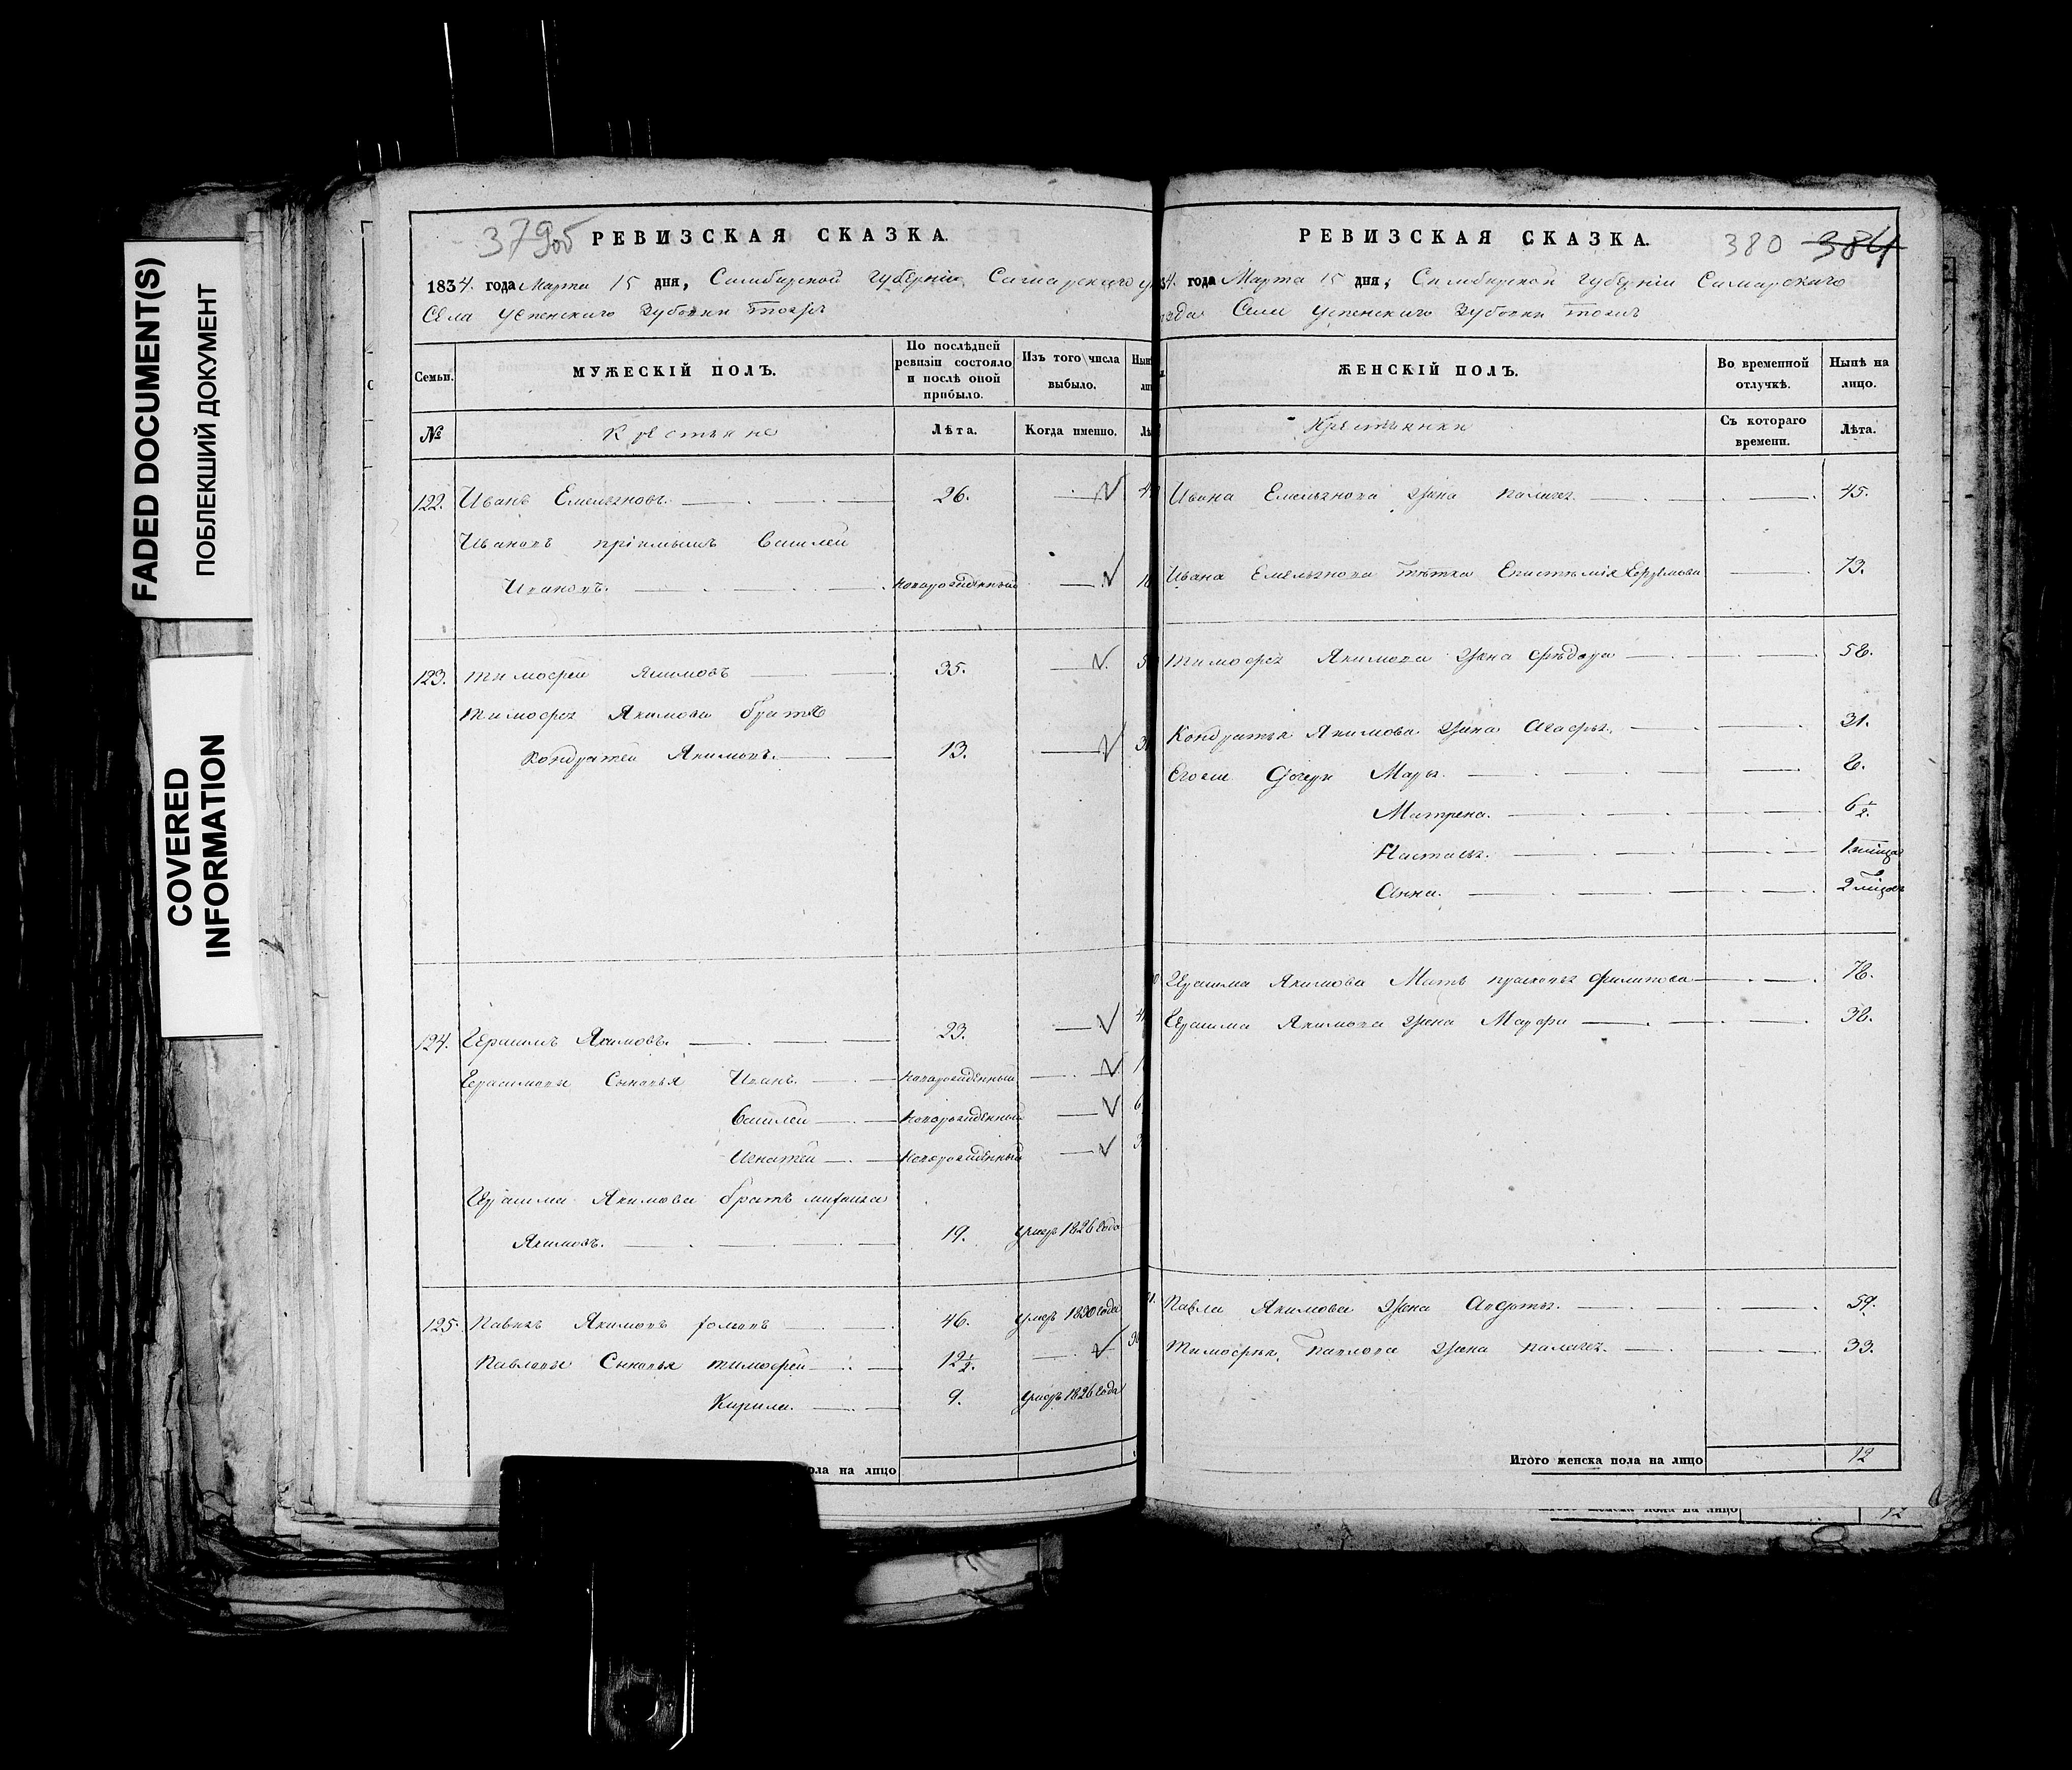 FADED DOCUMENT(S)
ПОБЛЕКШИЙ ДОКУМЕНТ
COVERED
INFORMATION
379об
РЕВИЗСКАЯ СКАЗКА.
1834. года Марта 15 дня, Симбирской губерніи, Самарского
Села Успенскаго Зубовки тожъ
Семьи.
МУЖЕСКІЙ ПОЛЪ.
По послѣдней
ревизіи состояло
и послѣ оной
прибыло.
Изъ того числа
выбыло.
№
Крестьяне
Лѣта.
Когда именно.
122. Иванъ Емельяновъ. 26.
Ивановъ пріемышъ Василей
Ивановъ. новорожденный
123. Тимофей Якимовъ 35.
Тимофея Якимова братъ
Кондратей Якимовъ. 13.
124. Герасимъ Якимовъ. 23.
Герасимовы Сыновья Иванъ. новорожденный
Василей новорожденный
Игнатей новорожденный
Герасима Якимова братъ
Якимовъ. 19. умеръ 1826 года
125. Павелъ Якимовъ 46. умеръ 1830 года
Павловы Сыновья Тимофей 12½.
Кирила. 9. умеръ 1826 года
пола на лицо
РЕВИЗСКАЯ СКАЗКА.
380 384
4. года Марта 15 дня, Симбирской губерніи Самарскаго
Села Успенскаго Зубовки тожъ
ЖЕНСКІЙ ПОЛЪ.
Во временной
отлучкѣ.
Нынѣ на
лицо.
Крестьянки
Съ котораго
времени.
Лѣта.
Ивана Емельянова жена Палагея 45.
Ивана Емельянова тѣтка Епистимія 73.
Тимофея Якимова жена Фѣдора 58.
Кондратья Якимова жена Агафья. 31.
Егоже Дочери Марья. 8.
Матрена. 6½.
Настасья.
Анна.
Герасима Якимова Мать Прасковья Филипова 78.
Герасима Якимова жена Марфа 38.
Павла Якимова жена Авдотья. 59.
Тимофея Павлова жена Палагея. 33.
Итого женска пола на лицо 12
женска пола на лицо 12